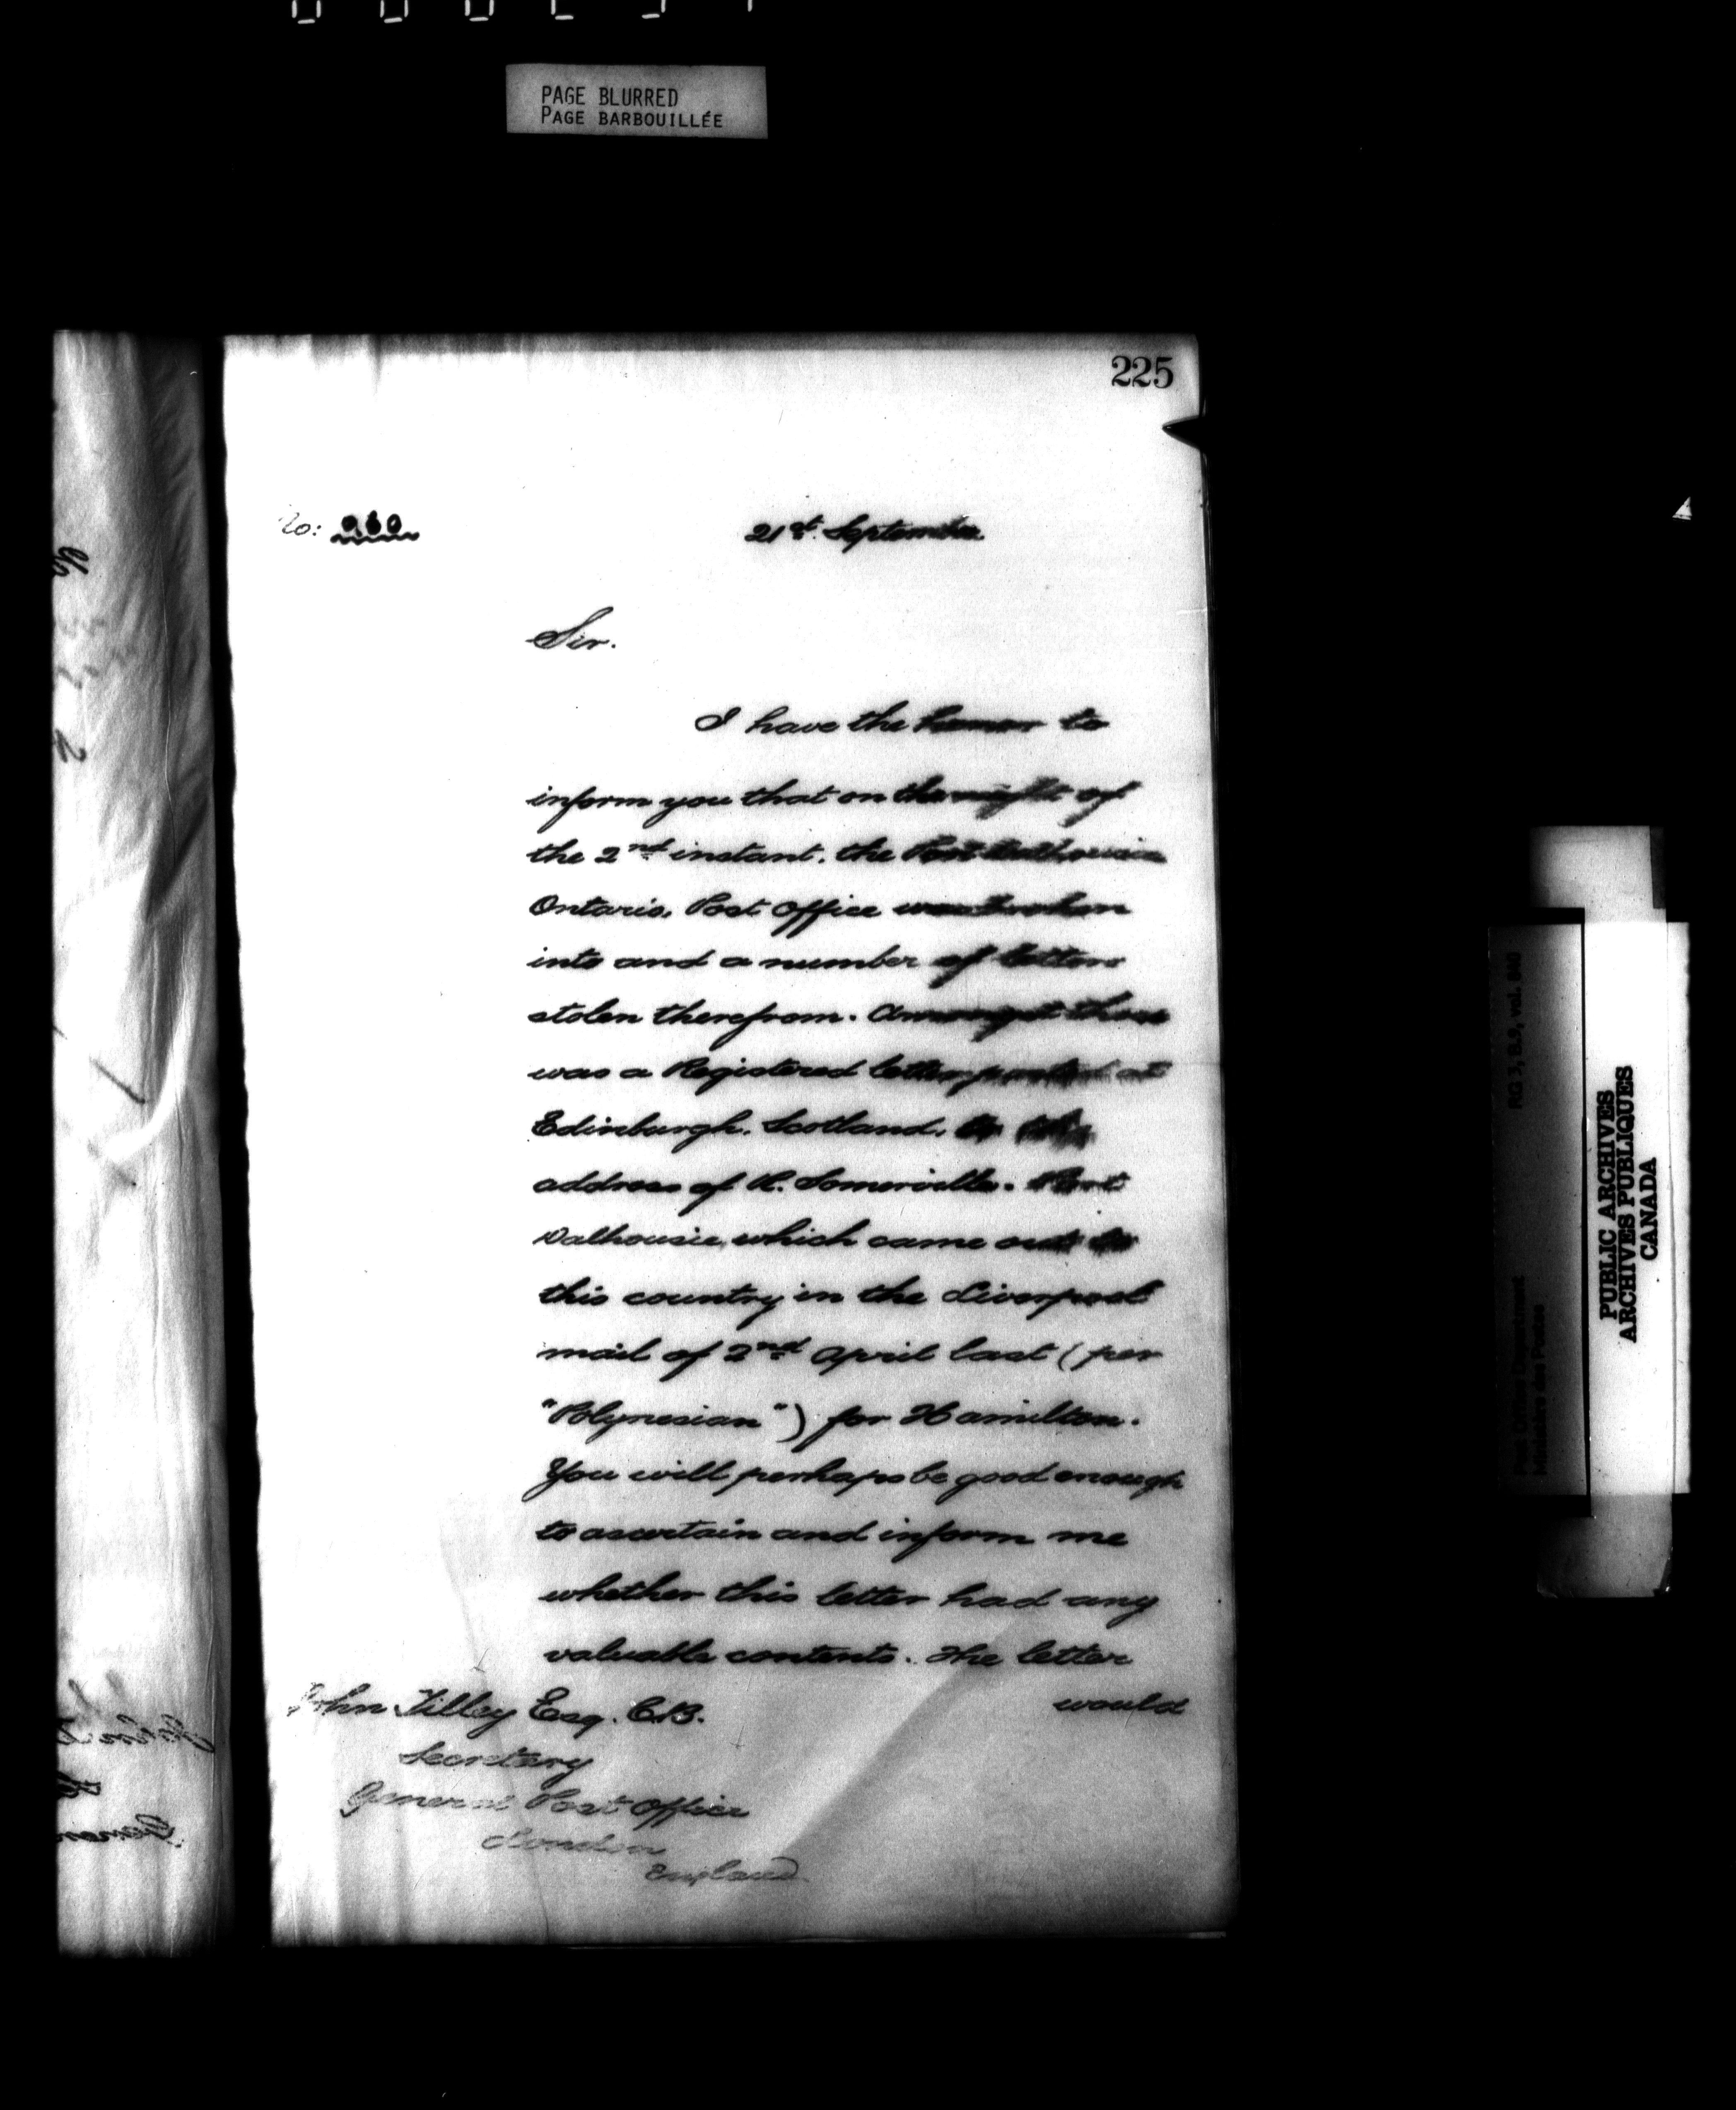 PAGE BLURRED
PAGE BARBOUILLÉE
225
No: 960
21st September
Sir.
I have the honor to
inform you that on the night of
the 2nd instant. the Port Dalhousie
Ontario, Post Office was broken
into and a number of letters
stolen therefrom. Amongst these
was a Registered letter posted at
Edinburgh. Scotland, to the
address of R. Somerville. Port
Dalhousie, which came out to
this country in the Liverpool
mail of 2nd April last (per
"Polynesian") for Hamilton.
You will perhaps be good enough
to ascertain and inform me
whether this letter had any
valuable contents. The letter
would
John Tilley Esq. C.B.
Secretary
General Post Office
London
England
RG 3, B.9, vol. 840
Post Office Department
Ministère des Postes
PUBLIC ARCHIVES
ARCHIVES PUBLIQUES
CANADA